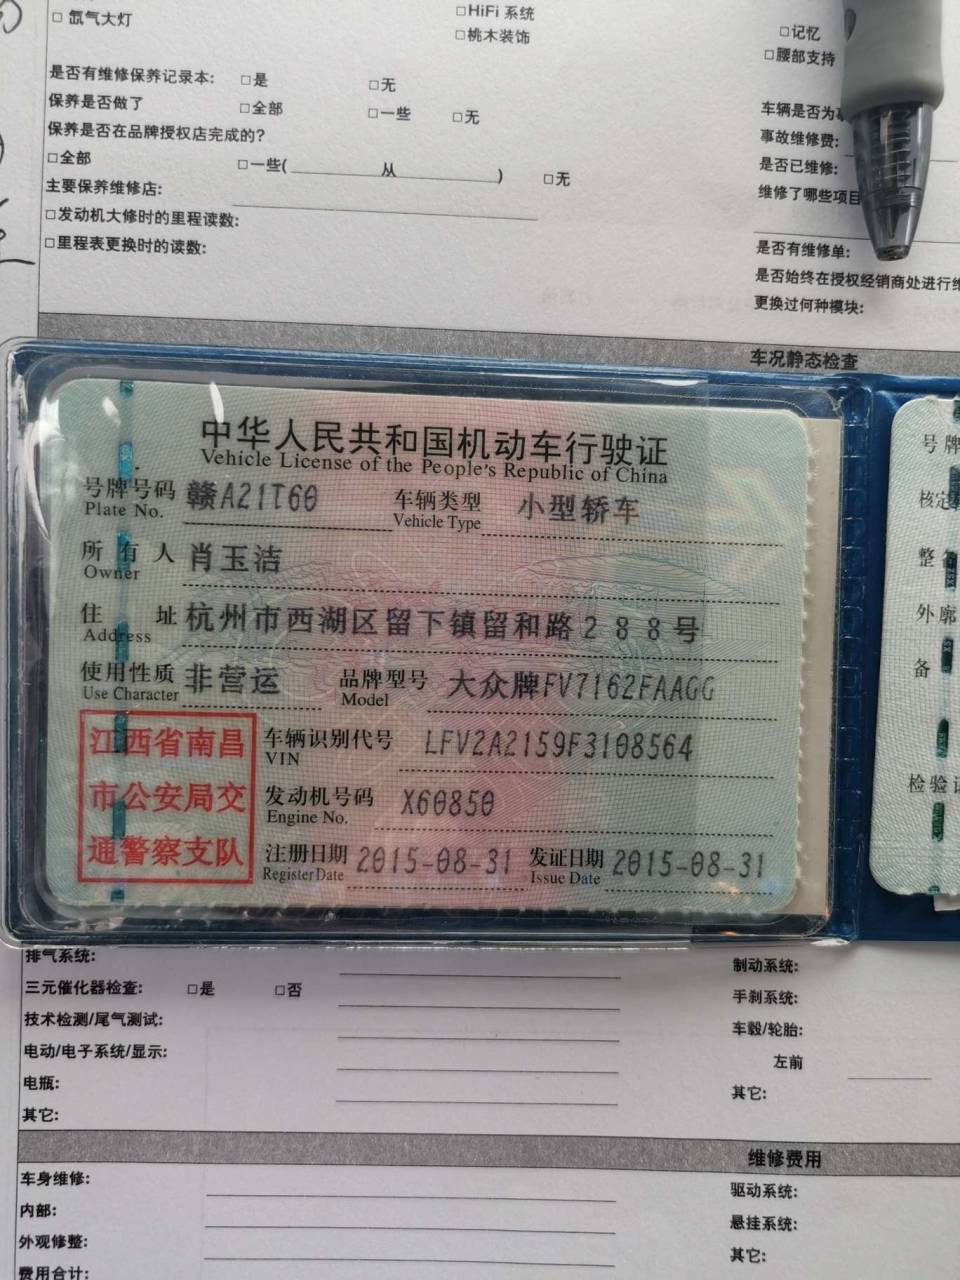 □氙气大灯
□HiFi 系统
□桃木装饰
□记忆
□腰部支持
是否有维修保养记录本: □是 □无
保养是否做了 □全部 □一些 □无
保养是否在品牌授权店完成的?
□全部 □一些( 从 ) □无
主要保养维修店:
□发动机大修时的里程读数:
□里程表更换时的读数:
车辆是否为
事故维修费:
是否已维修:
维修了哪些项目
是否有维修单:
是否始终在授权经销商处进行维
更换过何种模块:
车况静态检查
中华人民共和国机动车行驶证
Vehicle License of the People's Republic of China
号牌号码 赣A21T60 车辆类型 小型轿车
Plate No. Vehicle Type
所有人 肖玉洁
Owner
住址 杭州市西湖区留下镇留和路288号
Address
使用性质 非营运 品牌型号 大众牌FV7162FAAGG
Use Character Model
江西省南昌
市公安局交
通警察支队
车辆识别代号 LFV2A2159F3108564
VIN
发动机号码 X60850
Engine No.
注册日期 2015-08-31 发证日期 2015-08-31
Register Date Issue Date
号牌
核定
整
外廓
备
检验
排气系统:
三元催化器检查: □是 □否
技术检测/尾气测试:
电动/电子系统/显示:
电瓶:
其它:
制动系统:
手刹系统:
车毂/轮胎:
左前
其它:
维修费用
车身维修:
内部:
外观修整:
费用合计:
驱动系统:
悬挂系统:
其它: